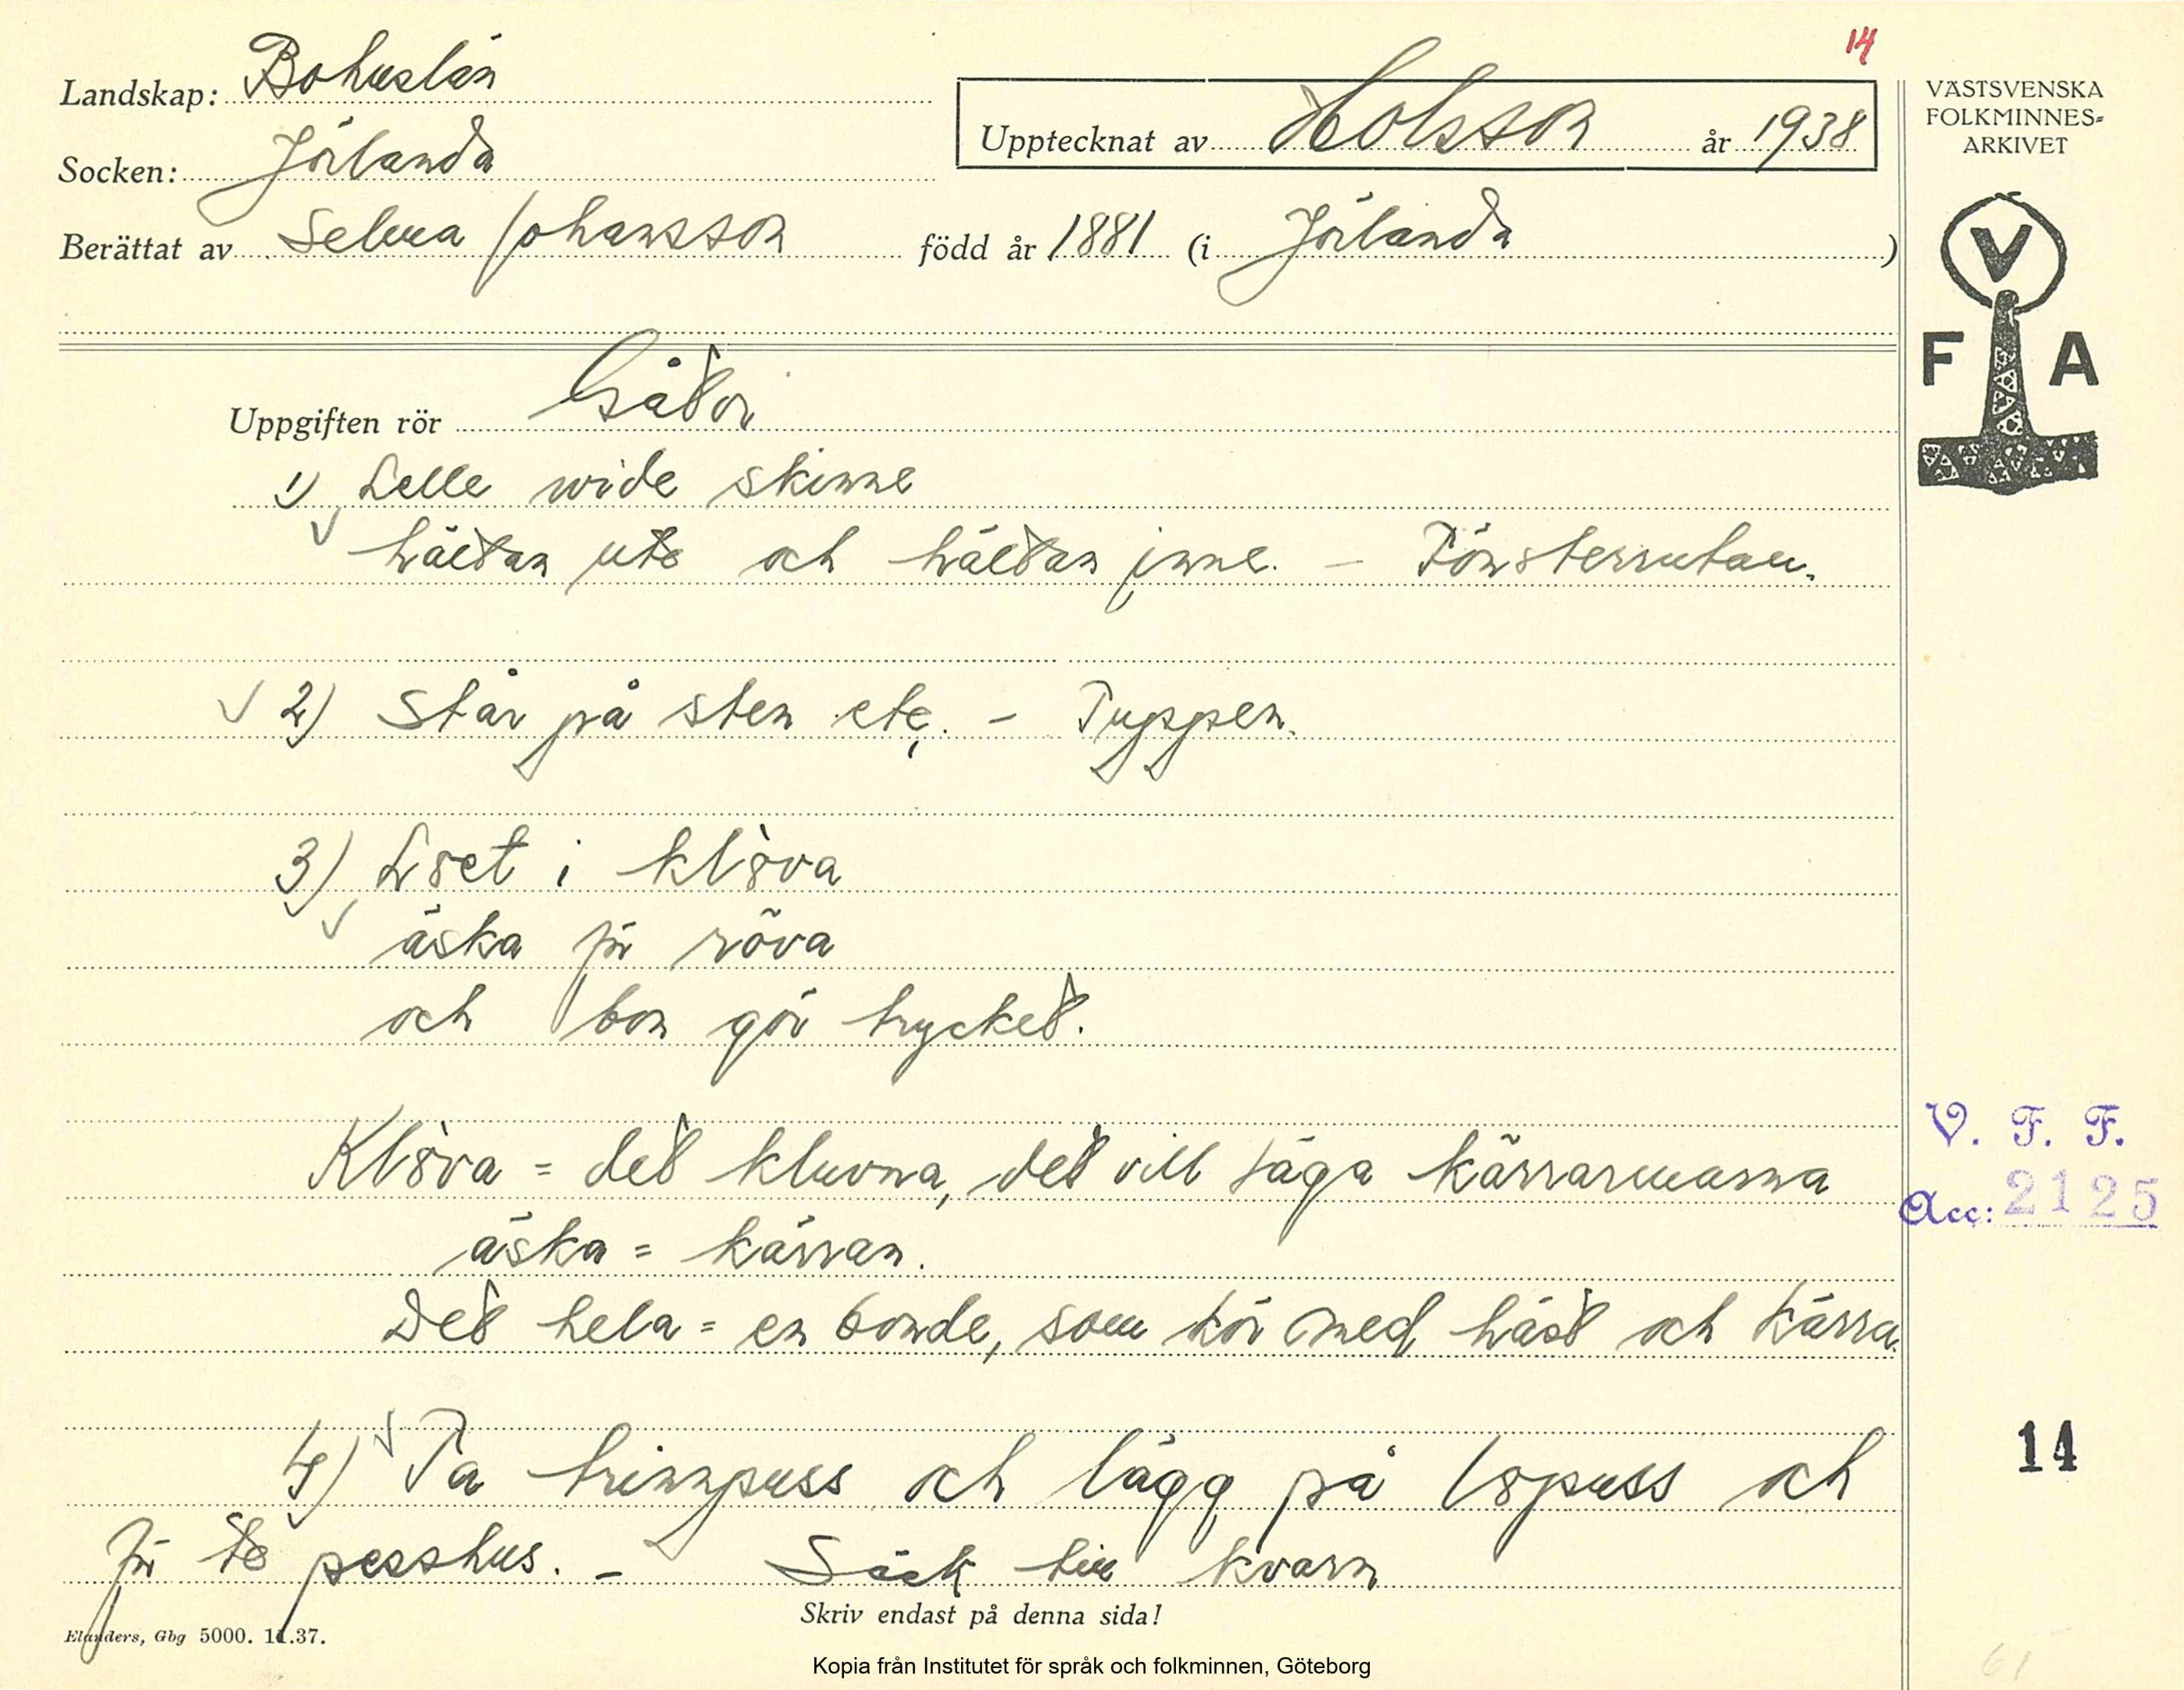 14
Landskap: Bohuslän
Upptecknat av Holsson år 1938
VÄSTSVENSKA
FOLKMINNES-
ARKIVET
Socken: Jörlanda
Berättat av Selma Johansson född år 1881 (i Jörlanda )
V
F A
Uppgiften rör Gåtor
1) Lelle wide skinne
hältan ute och hältan inne. – Fönsterrutan.
2) Står på sten etc. – Tuppen.
3) Löet i klöva
äska på röva
och bon gör trycket.
Klöva = det kluvna, det vill säga kärrarmarna
äska = kärran.
Det hela = en bonde, som kör med häst och kärra.
V. F. F.
Acc: 2125
4) Ta trinnpuss och lägg på löpuss och
14
för te pesshus. – Säck till kvarn
Skriv endast på denna sida!
Elanders, Gbg 5000. 11.37.
Kopia från Institutet för språk och folkminnen, Göteborg
61